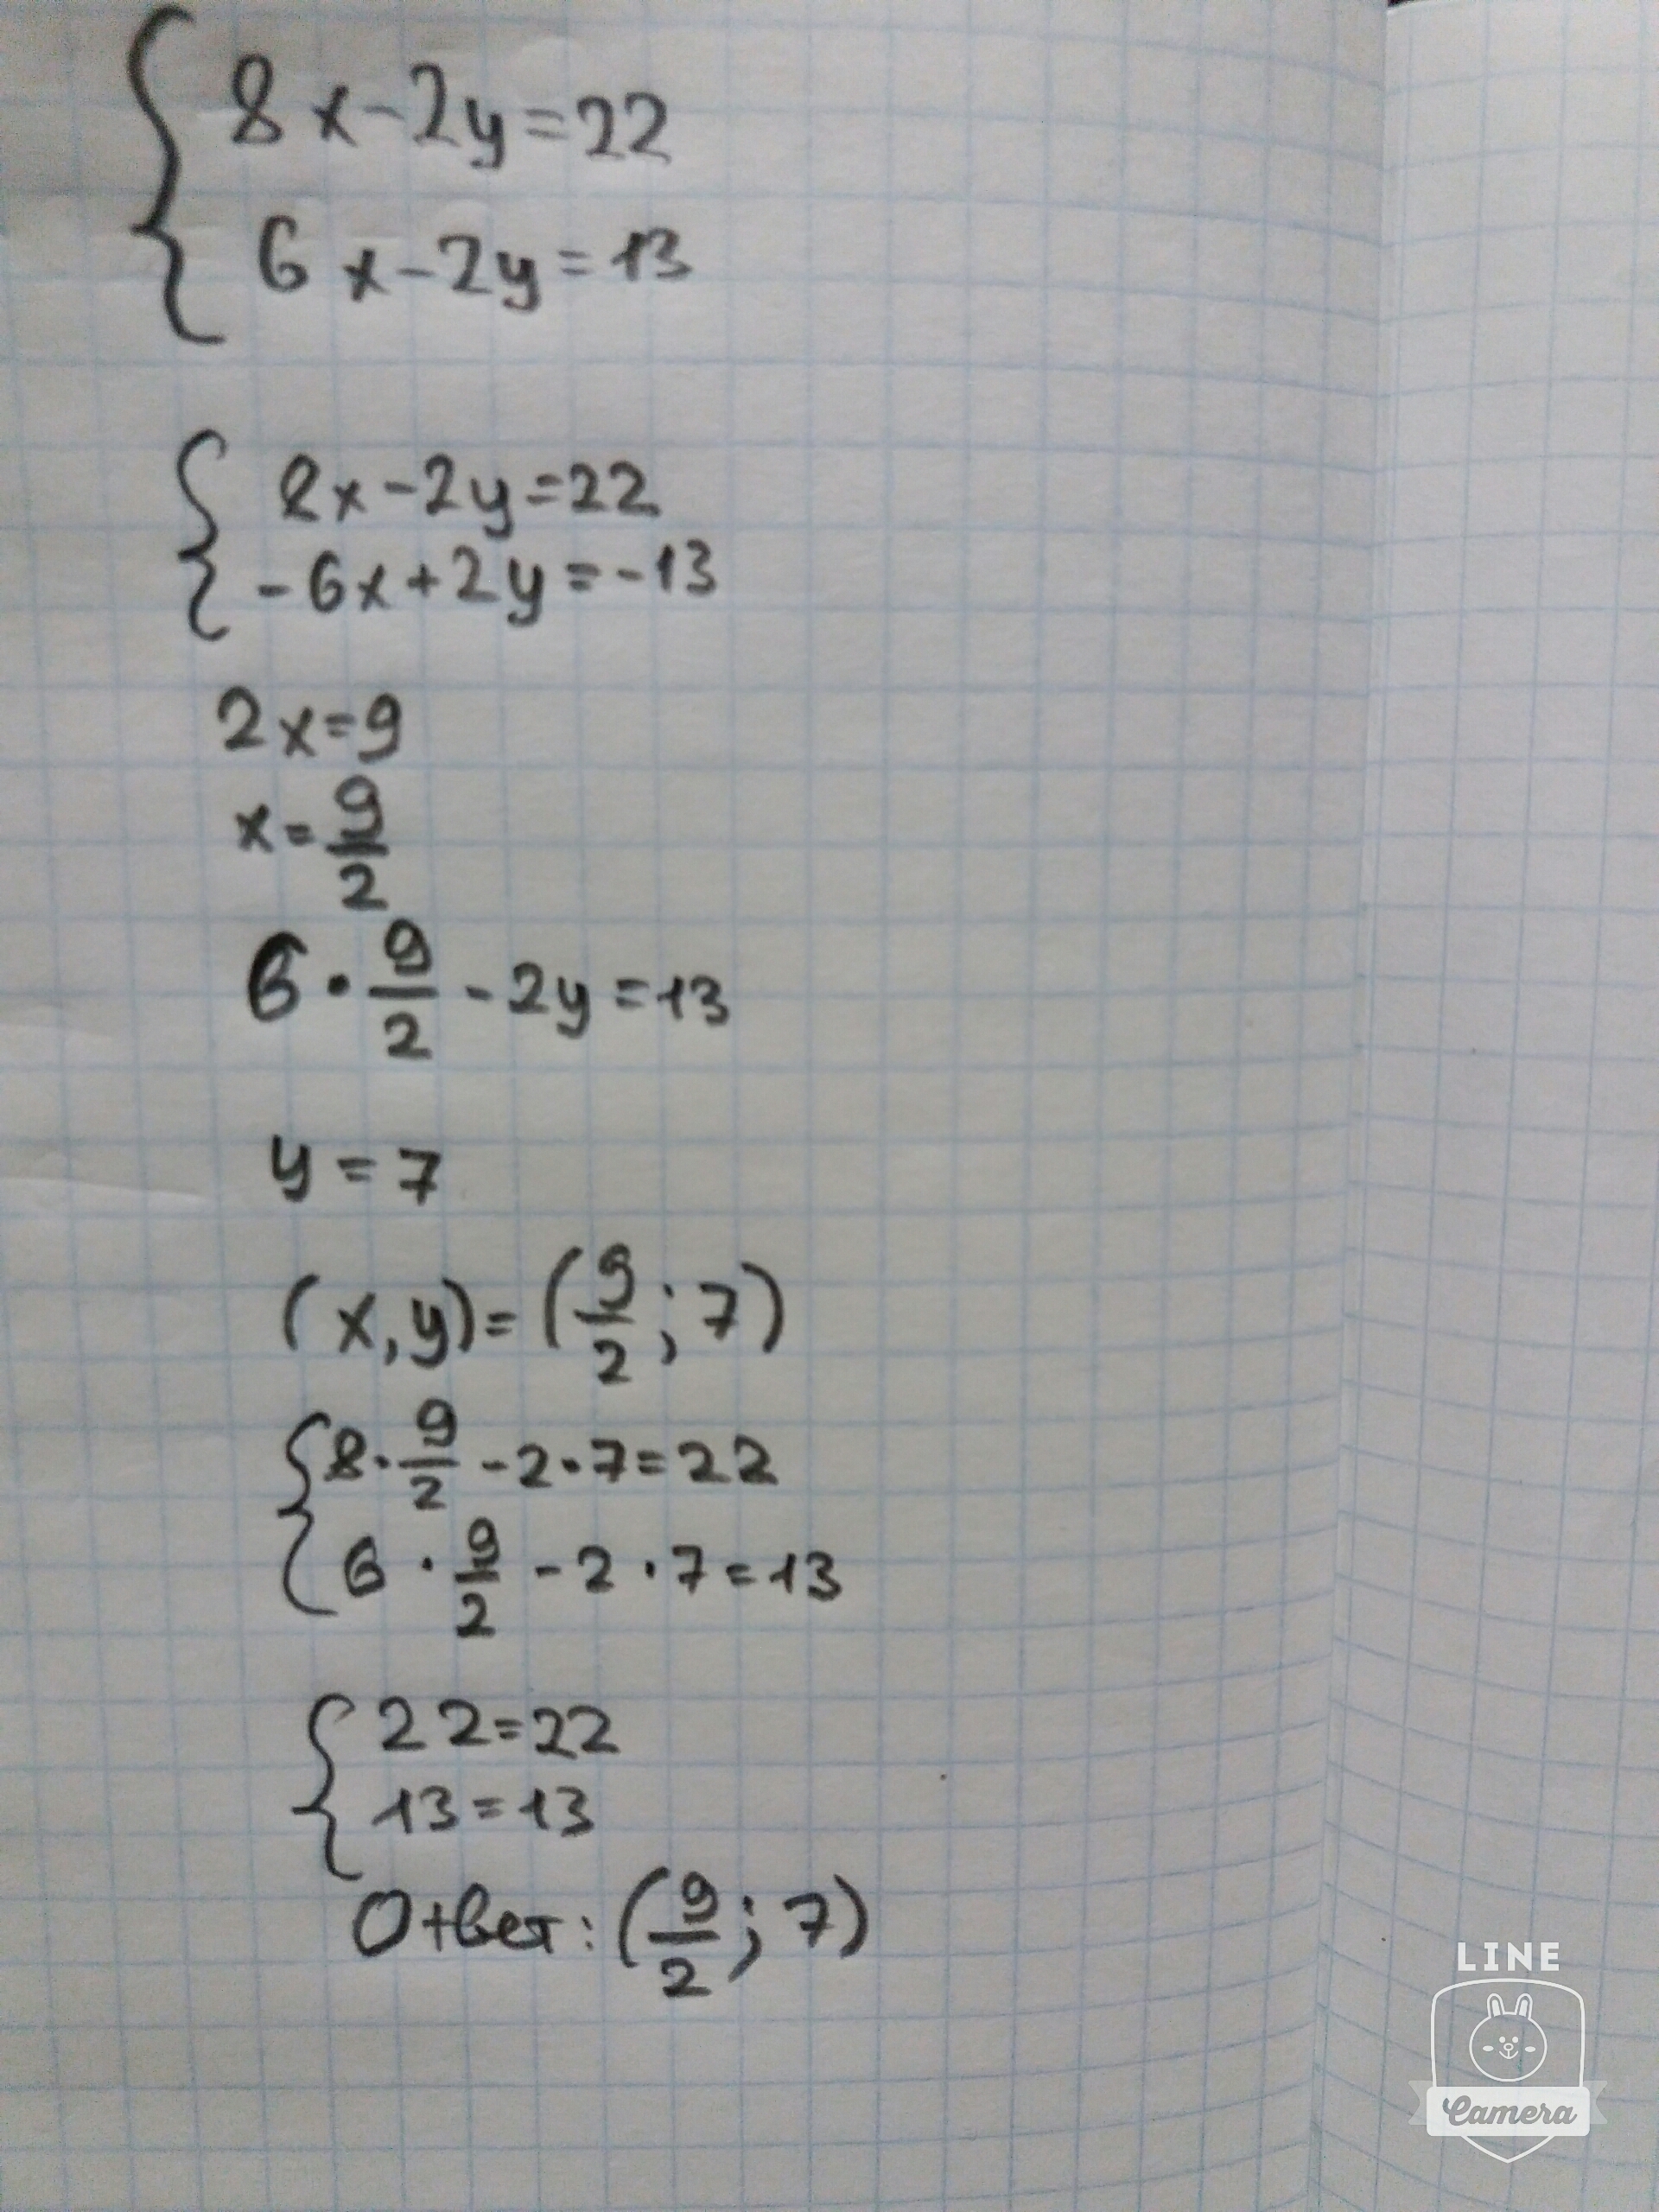 8x-2y=22
6x-2y=13
8x-2y=22
-6x+2y=-13
2x=9
x=9/2
6·9/2-2y=13
y=7
(x,y)=(9/2;7)
8·9/2-2·7=22
6·9/2-2·7=13
22=22
13=13
Ответ:(9/2;7)
LINE
Camera